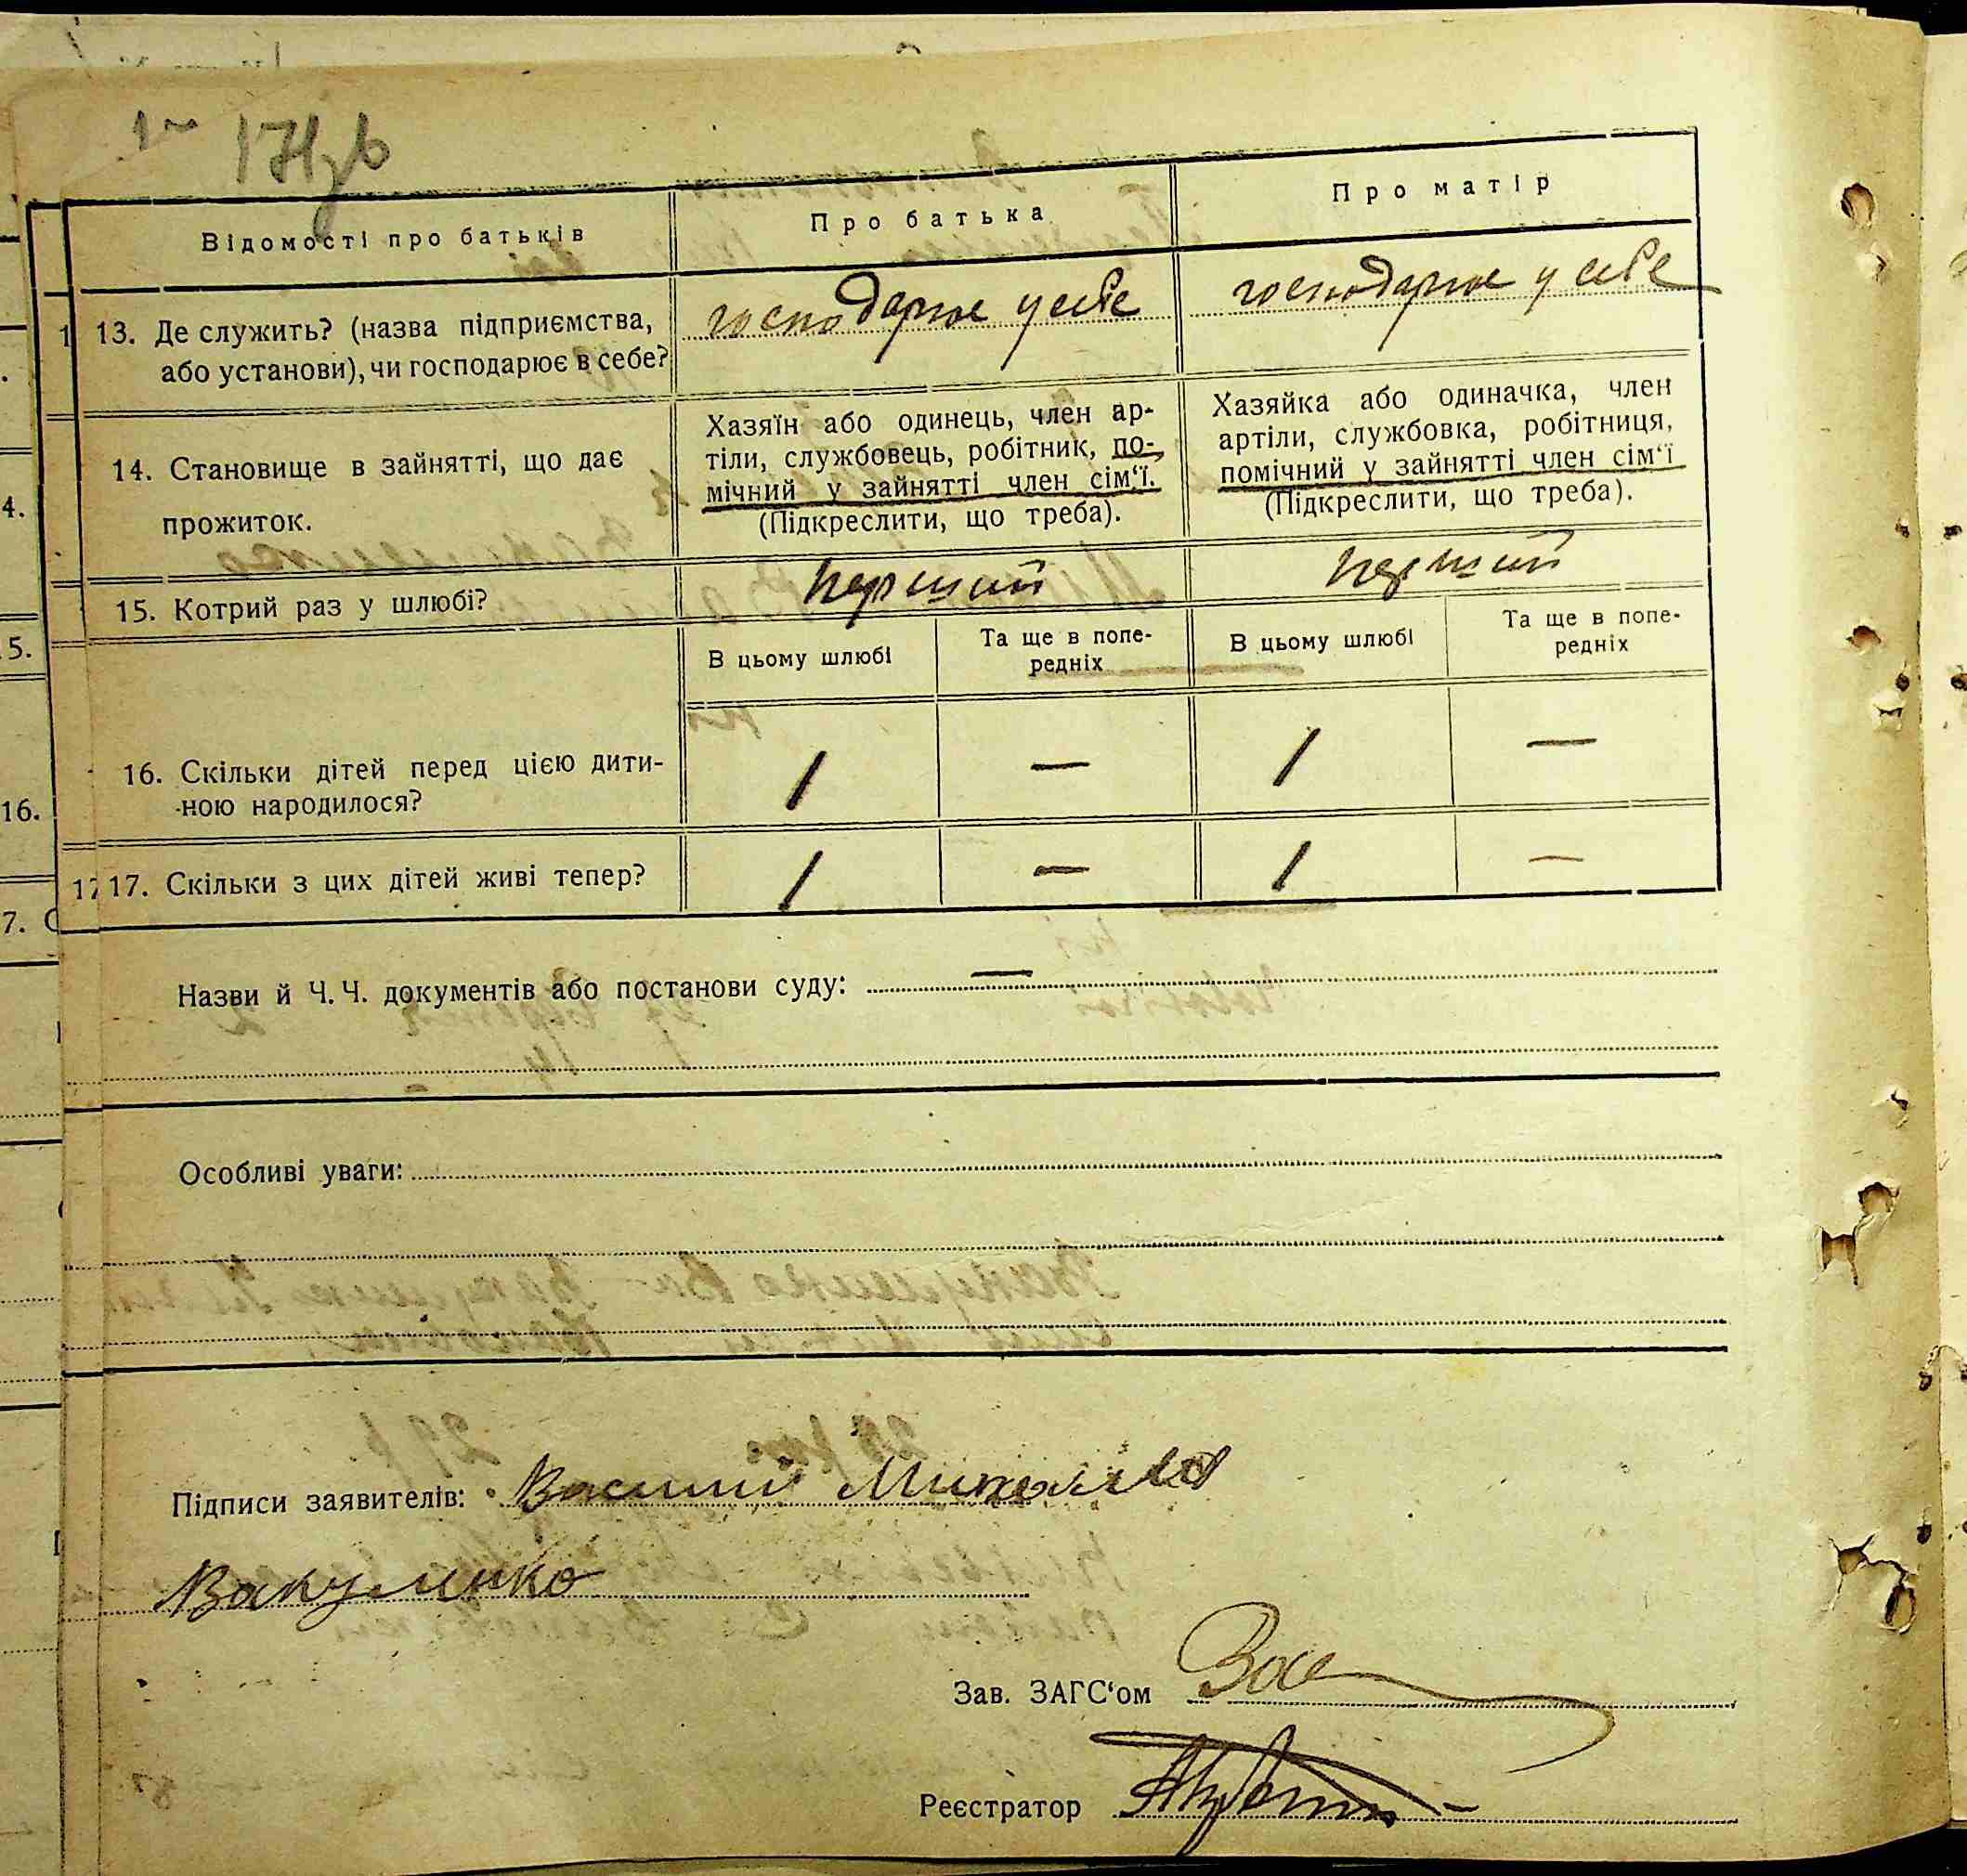 Відомості про батьків
Про батька
Про матір
13. Де служить? (назва підприємства,
або установи), чи господарює в себе?
господарює у себе
господарює у себе
14. Становище в зайнятті, що дає
прожиток.
Хазяїн або одинець, член ар-
тіли, службовець, робітник, по-
мічний у зайнятті член сім'ї.
(Підкреслити, що треба).
Хазяйка або одиначка, член
артіли, службовка, робітниця,
помічний у зайнятті член сім'ї
(Підкреслити, що треба).
15. Котрий раз у шлюбі?
перший
перший
В цьому шлюбі
Та ще в попе-
редніх
В цьому шлюбі
Та ще в попе-
редніх
16. Скільки дітей перед цією дити-
ною народилося?
1 — 1 —
17. Скільки з цих дітей живі тепер?
1 — 1 —
Назви й Ч. Ч. документів або постанови суду: —
Особливі уваги:
Підписи заявителів: Василий
Вакуленко
Зав. ЗАГС'ом
Реєстратор
4.
5.
16.
7.